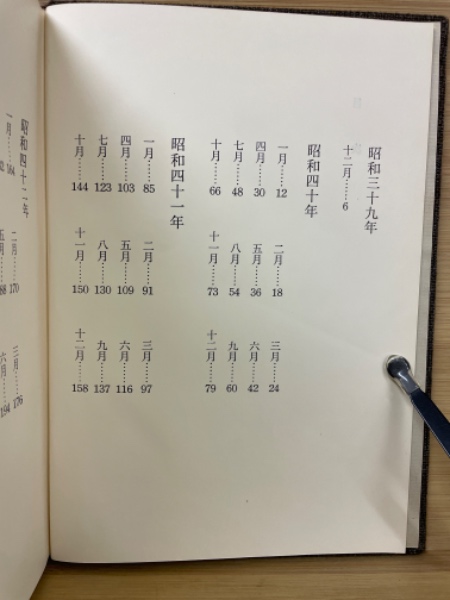 昭和三十九年
十二月……6
昭和四十年
一月……12
二月……18
三月……24
四月……30
五月……36
六月……42
七月……48
八月……54
九月……60
十月……66
十一月……73
十二月……79
昭和四十一年
一月……85
二月……91
三月……97
四月……103
五月……109
六月……116
七月……123
八月……130
九月……137
十月……144
十一月……150
十二月……158
昭和四十二年
一月……164
二月……170
三月……176
五月
六月……194